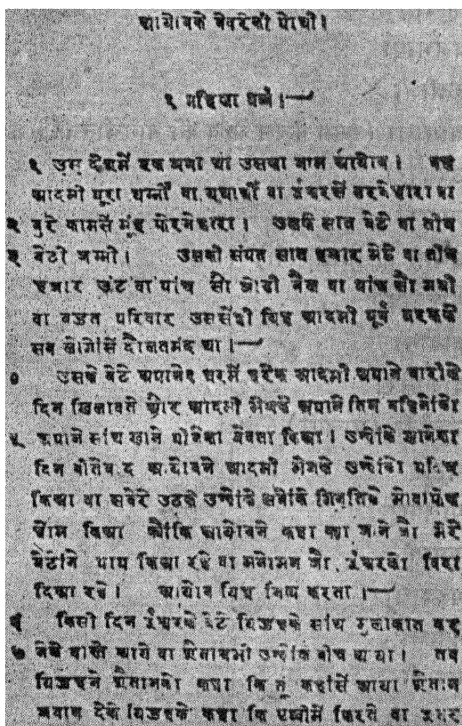 आयोबके केबरेकी पोथी।
१ पहिला पर्ब्ब।
१ उस देशमें एक जना था उसका नाम आयोब। वह
आदमी पूरा धर्म्मी वा यथार्थी वा ईश्वरसें डरनेहारा वा
२ बुरे कामसें मुंह फेरनेहारा। उसके सात बेटे वा तीन
३ बेटी जन्मी। उसकी संपत सात हजार भेड़ी वा तीन
हजार ऊंट वा पांच सौ जोड़ी बैल वा पांच सौ गधी
वा बज्जत परिवार उससेंही यिह आदमी पूर्ब्ब
सब लोगोंसें दौलतमंद था।
४ उसके बेटे अपाने२ घरमें हरेक आदमी अपाने बारीके
दिन खिलावते और आदमी भेजके अपाने तिन बहिनोंको
५ अपाने सांथ खाने पीनेका नेवता किआ। उन्होंके खानेका
दिन बीतेबाद आयोबने आदमी भेजके उन्होंको पवित्र
किआ वा सबेरे उठके उन्होंके सभोंके गिन्तिके
होम किआ क्योंकि आयोबने कहा क्या जाने जो मेरे
बेटोंने पाप किआ रहे वा मनोमन जो ईश्वरको बिदा
दिआ रहे। आयोब यिह नित्य करता।
६ किसी दिन ईश्वरके बेटे यिहूहके सांथ मुलाकात कर
७ नेके वास्ते आये वा शैतानभी उन्होंके बीच आया। तब
यिहूहने शैतानको कहा कि तूं कहांसें आया शैतान
जवाब देके यिहूहको कहा कि पृथ्वीमें फिरते वा